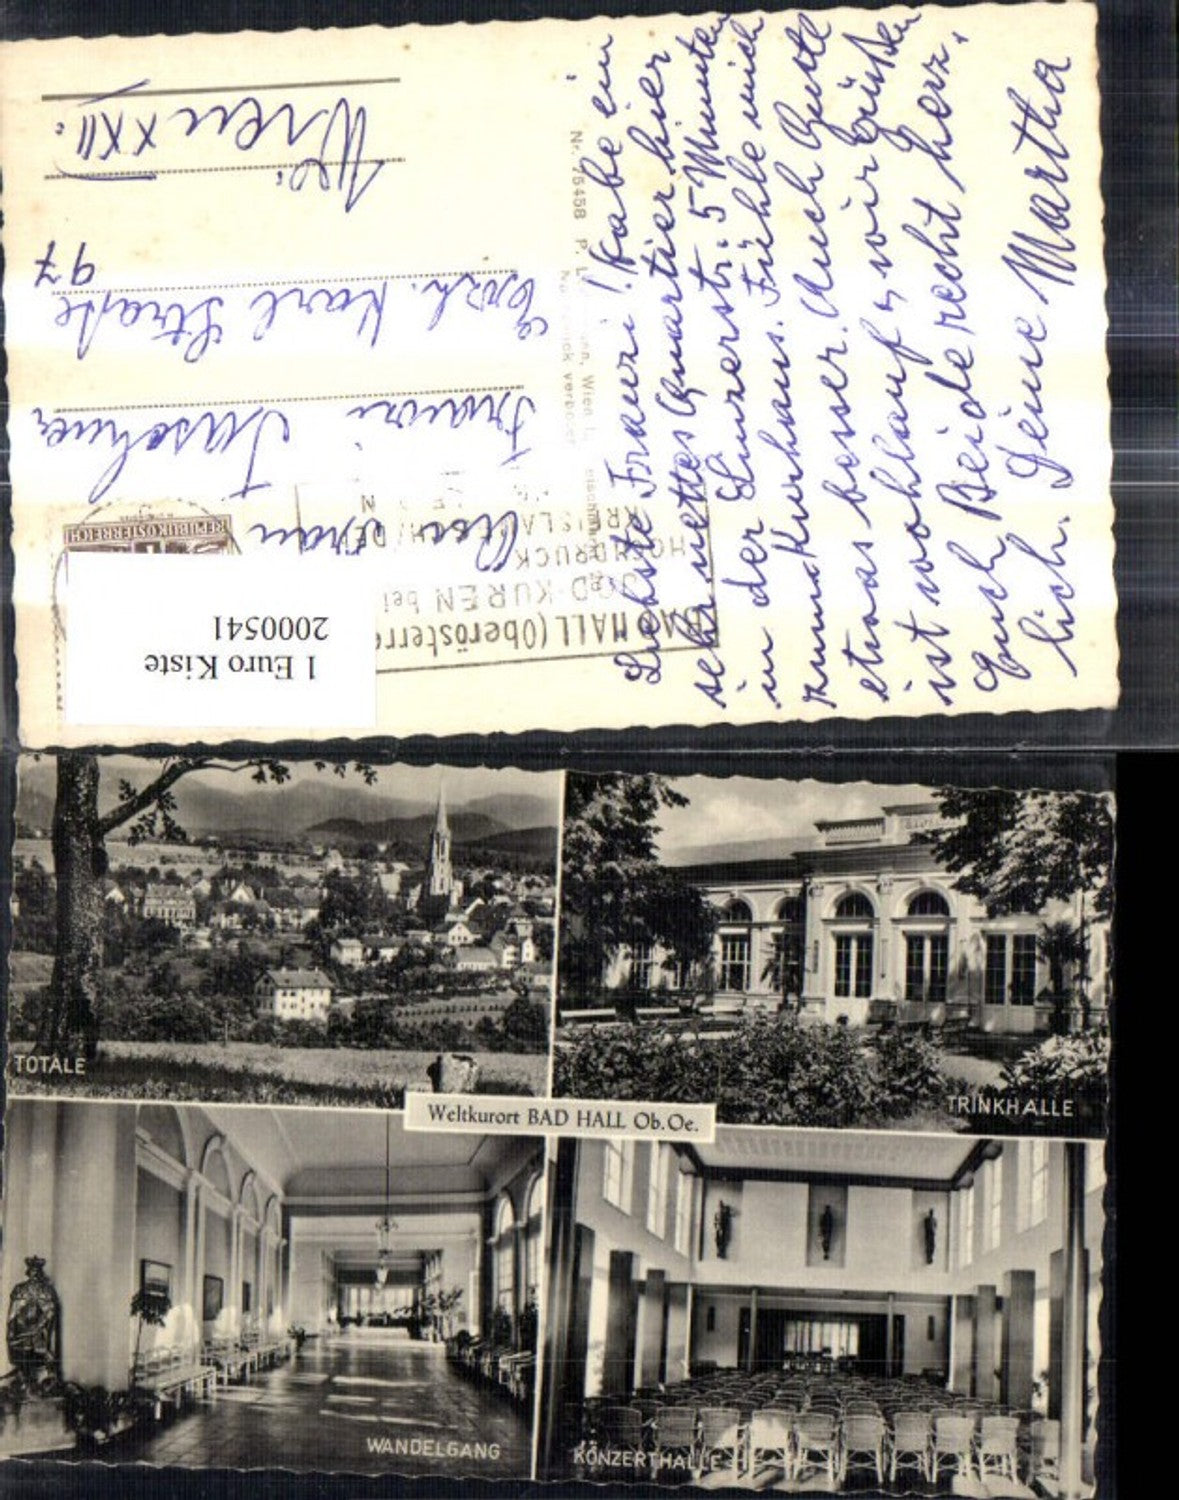 Liebste Franzi! Habe ein
sehr nettes Quartier hier
in der Linzerstr. 5 Minuten
zum Kurhaus. Fühle mich
etwas besser. Auch Gustl
ist wohlauf u. wir Grüßen
Euch Beide recht herz-
lich. Deine Martha
Nr. 75458 P. L
Wien I,
BAD HALL (Oberösterre
JOD-KUREN bei
HOCHDRUCK
REPUBLIK ÖSTERREICH
An Frau
Franzi
Erzh. Karl Straße
97
Wien XXII.
1 Euro Kiste
2000541
TOTALE
TRINKHALLE
Weltkurort BAD HALL Ob.Oe.
WANDELGANG
KONZERTHALLE